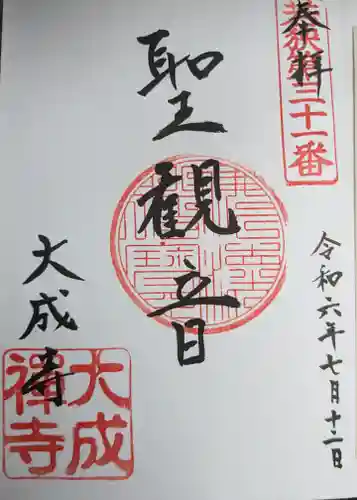 奉拝
第三十一番
令和六年七月十二日
聖観立日
大成寺
大成
禅寺